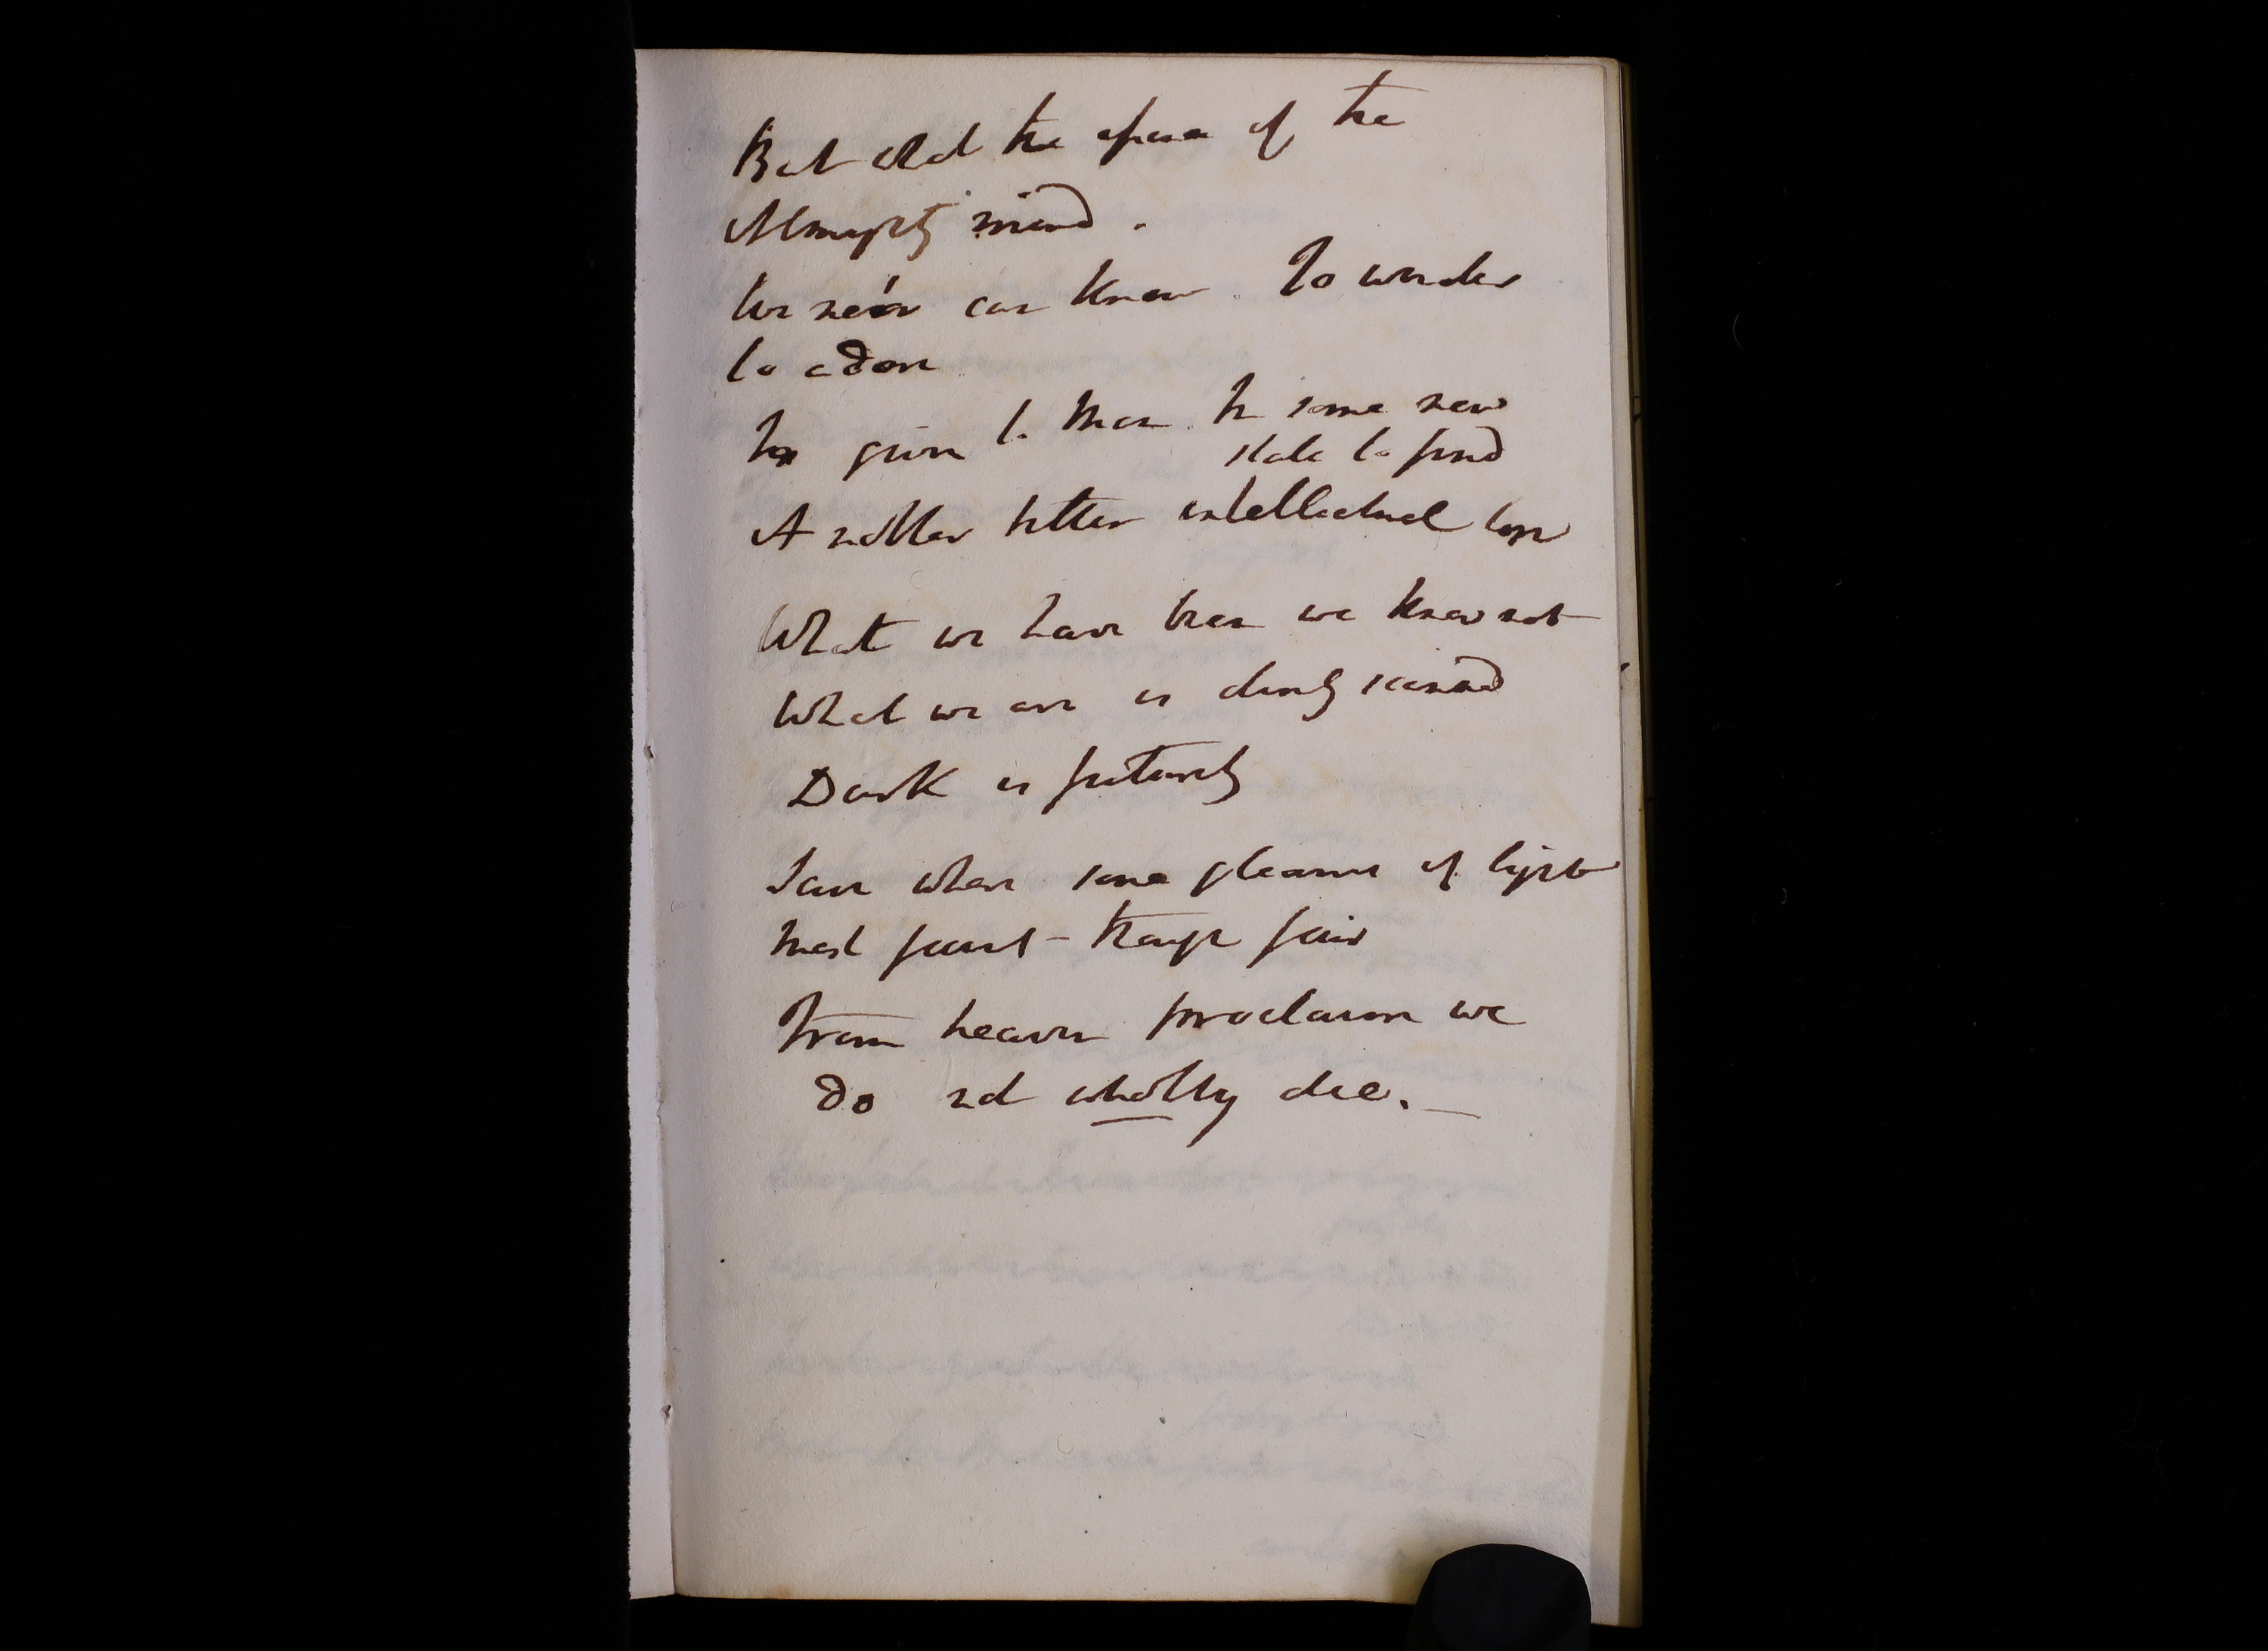 But what the of the
Almighty mind.
We ne'er can know. To wonder
to adore
Is given to Man. In some new
state to find
A nobler better intellectual lore
What we have been we know not
What we are is dimly scanned
Dark is futurity
Save where some gleams of light
Most faint - though fair
From heaven proclaim we
do not wholly die. _